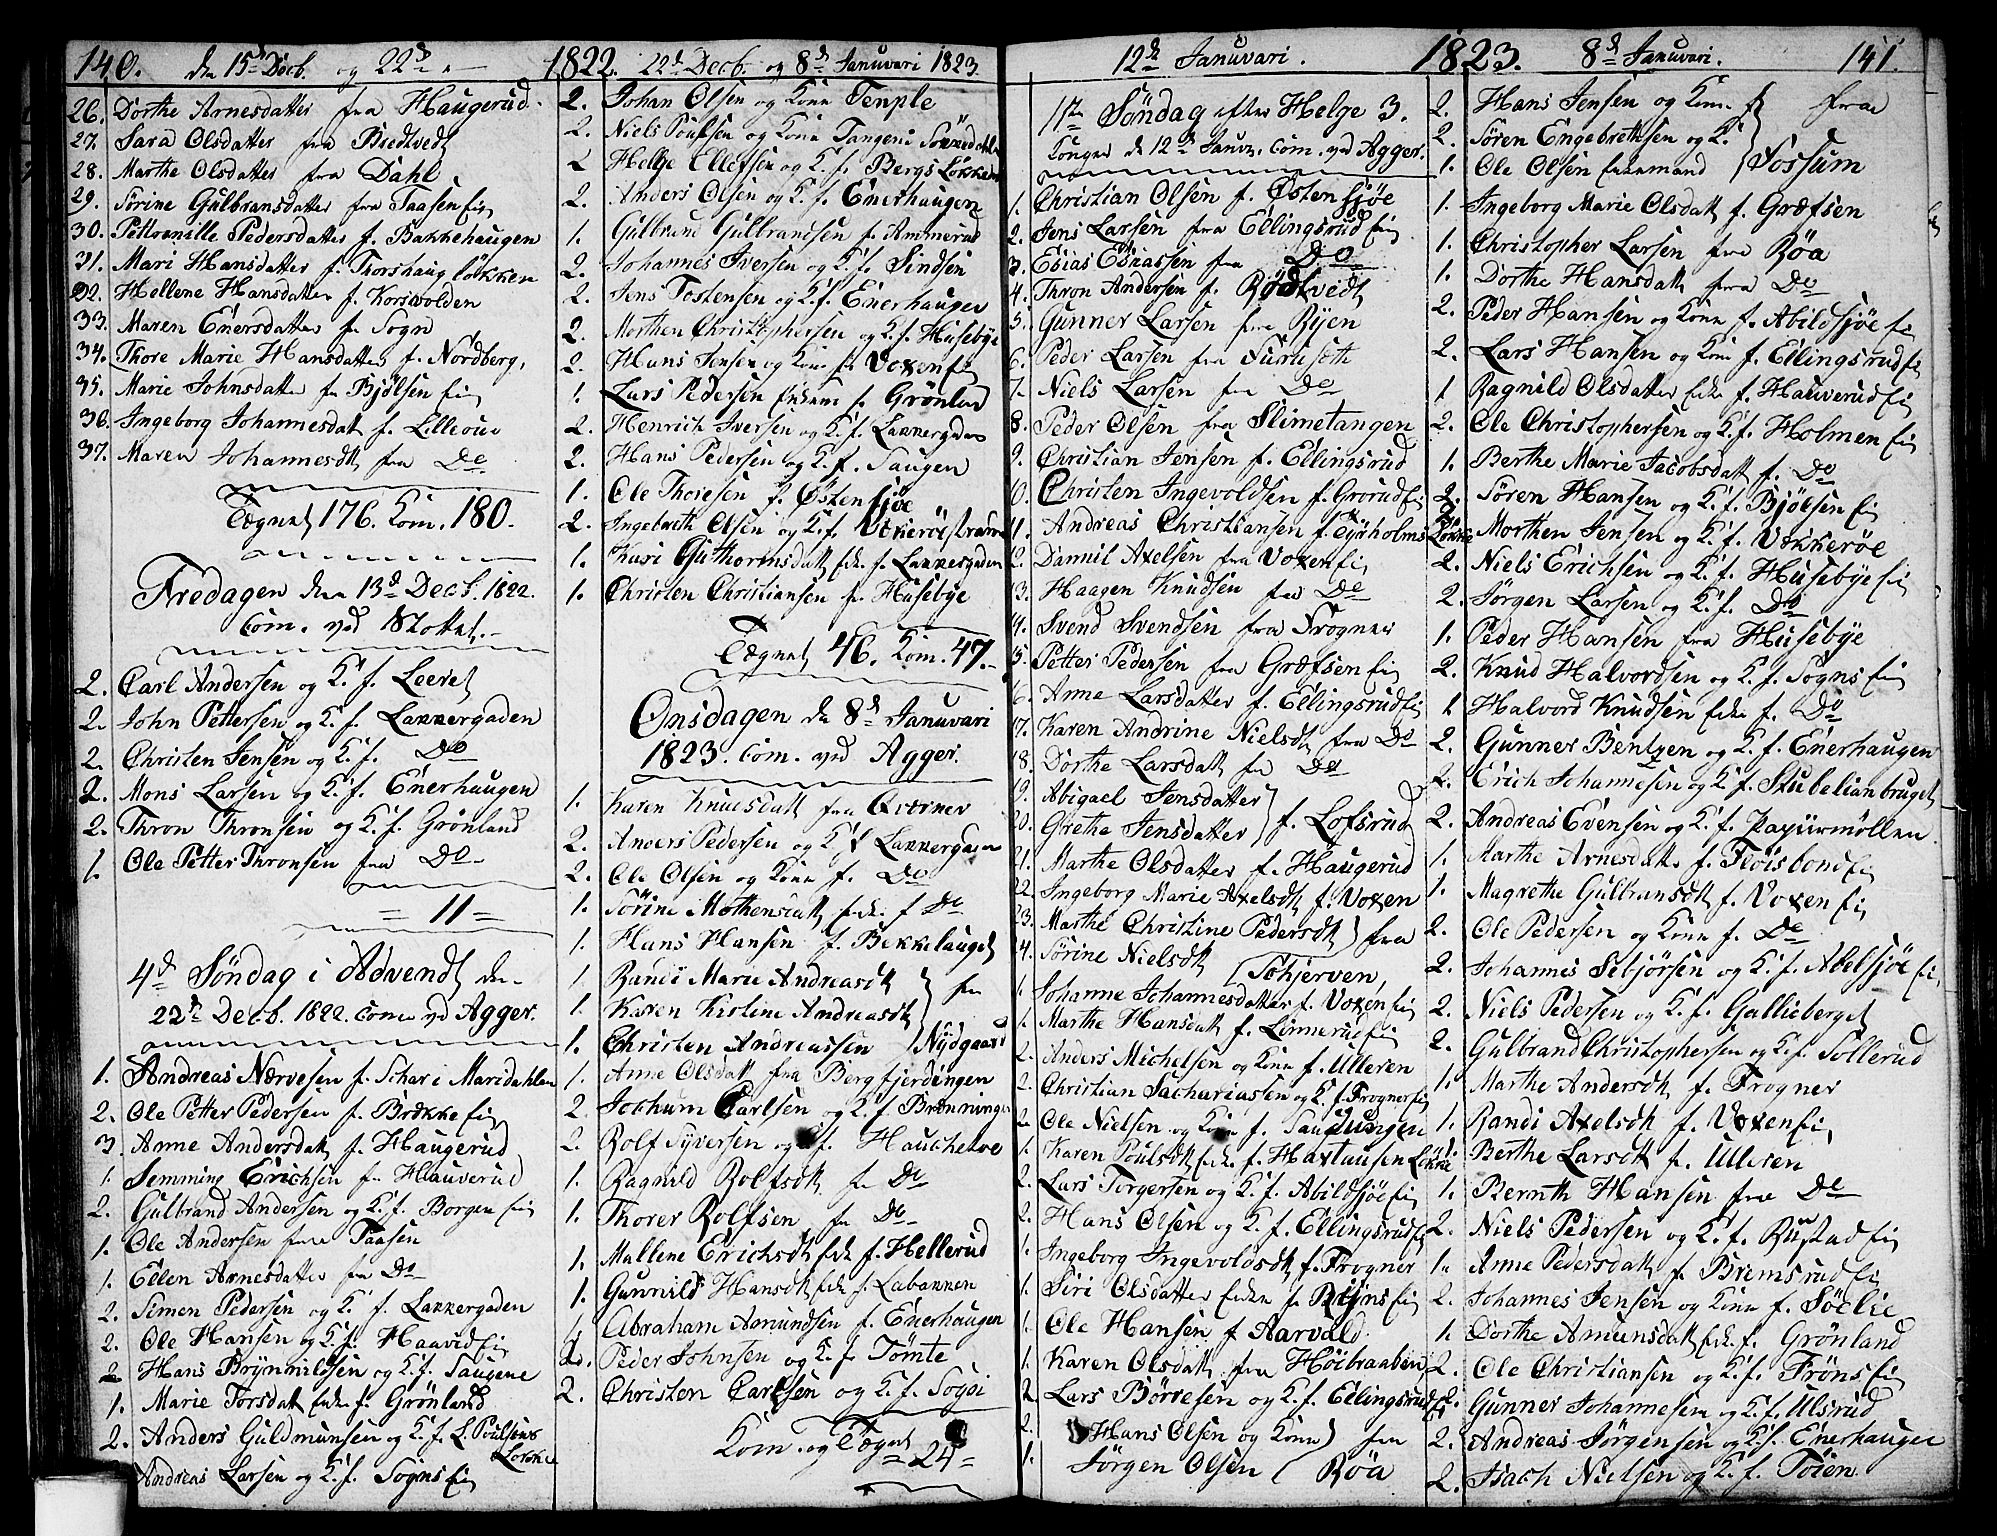 140. den 15de Decb. og 22de
1822. 22de Decb. og 8de Januvari 1823.
26. Dorthe Arnesdatter fra Haugerud.
27. Sara Olsdatter fra Bredtvedt
28. Marthe Olsdatter fra Dahl
29. Sørine Gulbransdatter fra Taasen Eie
30. Pettronille Pedersdatter f. Bakkehaugen
31. Mari Hansdatter f. Thorshaug Løkken
32. Hellene Hansdatter f. Korsvolden
33. Maren Enersdatter fr Sogn
34. Thore Marie Hansdatter f. Nordberg,
35. Marie Johnsdatter fr Bjølsen Eie
36. Ingeborg Johannesdatt f. Lilleoue
37. Maren Johannesdt fra Do
Tegnet 176. Kom. 180.
Fredagen den 13de Decb. 1822.
Com. ved Slottet.
2. Carl Andersen og K. f. Leeret
2. John Pettersen og K. f. Lakkergaden
2. Christen Jensen og K. f. Do
2. Mons Larsen og K. f. Enerhaugen
2. Thron Thronsen og K. f. Grønland
1. Ole Petter Thronsen fra Do
= 11 =
4de Søndag i Advendt den
22de Decb. 1822. Com. ved Agger.
1. Andreas Nærvesen f. Schar i Maridahlen
2. Ole Petter Pedersen f. Brække Eie
3. Anne Andersdatt f. Haugerud
1. Semming Erichsen fr Hauverud
2. Gulbrand Andersen og K. f. Borgen Eie
1. Ole Andersen fra Taasen
1. Ellen Arnesdatter fra Do
2. Simen Pedersen og K. f. Lakkergaden
2. Ole Hansen og K. f. Haavid Eie
2 Hans Brynnildsen og K. f. Saugene
1. Marie Torsdatt Enke f. Grønland
2. Anders Guldmunsen og K. f. L. Poulsens Løkke
Andreas Larsen og K. f. Sogns Eie
2. Johan Olsen og Kone Temple
2. Niels Poulsen og Kone Tangen i Sørkedahlen
2 Helge Ellefsen og K. f. Bergs Løkken
2. Anders Olsen og K. f. Enerhaugen
1. Gulbrand Gulbrandsen f. Ammerud
2. Johannes Iversen og K. f. Sindsen
2. Jens Tostensen og K. f. Enerhaugen
2. Morthen Christophersen og K. f. Husebye
2. Hans Jensen og Kone fr Voxen Eie
1. Lars Pedersen Enkem. f. Grønland
2. Henrich Iversen og K. f. Lakkergaden
2. Hans Pedersen og K. f. Saugen
1. Ole Thoresen f. Østensjøe
2. Ingebreth Olsen og K. f. Vækerøe
1. Kari Guthormsdatt Enke f. Lakkergaden
1. Christen Christiansen fr Husebye
Tegnet 46. Kom. 47.
Onsdagen den 8de Januvari
1823. Com. ved Agger.
1. Karen Knudsdatt fra Qværner
2. Anders Pedersen og K. f. Lakkergaden
2. Ole Olsen og Kone f. Do
1. Sørine Mothensdatt Enke f Do
1. Hans Hansen f. Bekkelauget
1. Randi Marie Andreasdt
1. Karen Kirstine Andreasdt fra
1. Christen Andreassen Nydgaard
1. Anne Olsdatt fra Bergfjerdingen
2. Jochum Carlsen og K. f. Brænningen
2. Rolf Syversen og K. f. Hauchelve
1. Ragnild Rolfsdt fr Do
1. Thorer Rolfsen fr Do
1. Mallene Erichsdt Enke f. Hellerud
1. Gunnild Hansdt Enke f. Labakken
1 Abraham Amundsen f. Enerhaugen
2. Peder Johnsen og K. f. Tømte
2. Christen Carlsen og K. f. Sogn
Kom. og Tegnet
= 24 =
12de Januvari. 1823. 8de Januvari. 141.
1ste Søndag efter Helge 3.
Konger de 12de Januv. Com. ved Agger.
1. Christian Olsen f. Østensjøe
2. Jens Larsen fra Ellingsrud Eie
3. Esias Esiassen fra Do
4. Thron Andersen f. Rødtvedt
5. Gunner Larsen fra Ryen
6. Peder Larsen fra Furusæth
7. Niels Larsen fra Do
8. Peder Olsen fra Slimetangen
9. Christian Jensen f. Ellingsrud
10. Christen Ingevoldsen f. Grorud Eie
11. Andreas Christiansen f. Tyrholms Løkke
12. Daniel Axelsen fra Voxen Eie
13. Haagen Knudsen fra Do
14. Svend Svendsen fra Frogner
15. Petter Pedersen fra Græfsen Eie
16. Anne Larsdatter f. Ellingsrud Eie
17. Karen Andrine Nielsdt fra Do
18. Dorthe Larsdatt fra Do
19. Abigael Jensdatter
20. Grethe Jensdatter f. Lofsrud
21. Marthe Olsdatter f. Haugerud
22. Ingeborg Marie Axelsdt f. Voxen
23. Marthe Christine Pedersdt fra
24. Sørine Nielsdt
1. Johanne Johannesdatter f. Voxen Eie
1. Marthe Hansdatt f. Linnerud Eie
2. Anders Michelsen og Kone f. Ulleren
2. Christian Sachariassen og K. f. Frogner Eie
2. Ole Nielsen og Kone f.
1. Karen Poulsdt Enke f. Haxtausen Løkke
2. Lars Torgersen og K. f. Abildsjøe Eie
2. Hans Olsen og K. f. Ellingsrud Eie
1. Ingeborg Ingevoldsdt f. Frogner
1. Siri Olsdatter Enke fr Ryns Eie
1. Ole Hansen f Aarvold
1. Karen Olsdatt fra Høibraaten
2 Lars Børresen og K. f. Ellingsrud Eie
2. Hans Olsen og Kone fra
1. Jørgen Olsen Røa
2. Hans Jensen og Kone f fra
2. Søren Engebrethsen og K.
1. Ole Olsen Enkemand Fossum
1. Ingeborg Marie Olsdatt f. Græfsen
1. Christopher Larsen fra Røa
1. Dorthe Hansdatt fra Do
2. Peder Hansen og Kone f. Abildsjøe Eie
2. Lars Hansen og Kone f. Ellingsrud Eie
1 Ragnild Olsdatter Enke f. Hauverud Eie
2. Ole Christophersen og K. f. Holmen Eie
1. Berthe Marie Jacobsdatt f. Do
2. Søren Hansen og K. f. Bjølsen Eie
2. Morthen Jensen og K. f. Vækkerøe
2. Niels Erichsen og K. f. Husebye Eie
2. Jørgen Larsen og K. f. Do
1. Peder Hansen fra Husebye
2. Knud Halvordsen og K. f. Sogns Eie
1. Halvord Knudsen Enke f. Do
2. Gunner Bentzen og K. f. Enerhaugen
2. Erich Johannesen og K. f. Stubelianbruget
2. Andreas Evensen og K. f. Papiirmøllen
1. Marthe Arnesdatt f. Fløisbond Eie
1. Magrethe Gulbransdt f. Voxen Eie
2. Ole Pedersen og Kone f. Do
2. Johannes Sebjørsen og K. f. Abelsjøe Eie
2. Niels Pedersen og K. f. Gallieberget
2. Gulbrand Christophersen og K. f. Sollerud
1. Marthe Andersdt f. Frogner
1. Randi Axelsdt f. Voxen Eie
1. Berthe Larsdt f. Ulleren
1. Bernth Hansen fra Do
2. Niels Pedersen og K. f. Rustad Eie
1. Anne Pedersdatt f. Bremsrud Eie
2. Johannes Jensen og Kone f. Sølie
1. Dorthe Amunsdatt Enke f. Grønland
2. Ole Christiansen og K. f. Frøns Eie
2. Gunner Johannesen og K. f. Ulsrud
2. Andreas Jørgensen og K. f. Enerhaugen
2. Isach Nielsen og K. f. Tøien